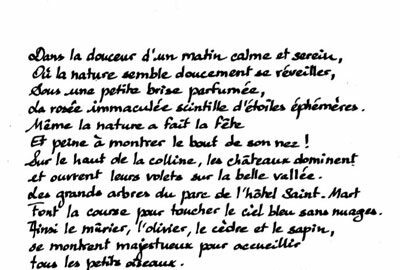 Dans la douceur d'un matin calme et serein,
Où la nature semble doucement se réveiller,
Sous une petite brise parfumée,
La rosée immaculée scintille d'étoiles éphémères.
Même la nature a fait la fête
Et peine à montrer le bout de son nez !
Sur le haut de la colline, les châteaux dominent
et ouvrent leurs volets sur la belle vallée.
Les grands arbres du parc de l'hôtel Saint-Mart
Font la course pour toucher le ciel bleu sans nuages.
Ainsi le mûrier, l'olivier, le cèdre et le sapin,
se montrent majestueux pour accueillir
tous les petits oiseaux.